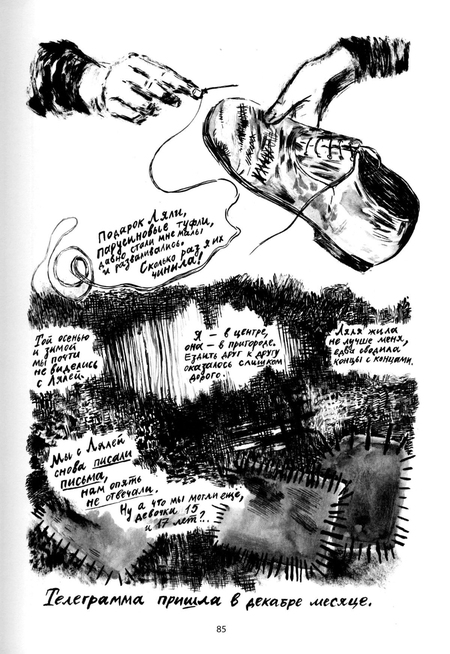 Подарок Ляли,
парусиновые туфли,
давно стали мне малы
и разваливались.
Сколько раз я их
чинила!
Той осенью
и зимой
мы почти
не виделись
с Лялей.
Я – в центре,
она – в пригороде.
Ездить друг к другу
оказалось слишком
дорого...
Ляля жила
не лучше меня,
едва сводила
концы с концами.
Мы с Лялей
снова писали
письма,
нам опять
не отвечали.
Ну а что мы могли ещё,
девочки 15
и 17 лет?..
Телеграмма пришла в декабре месяце.
85